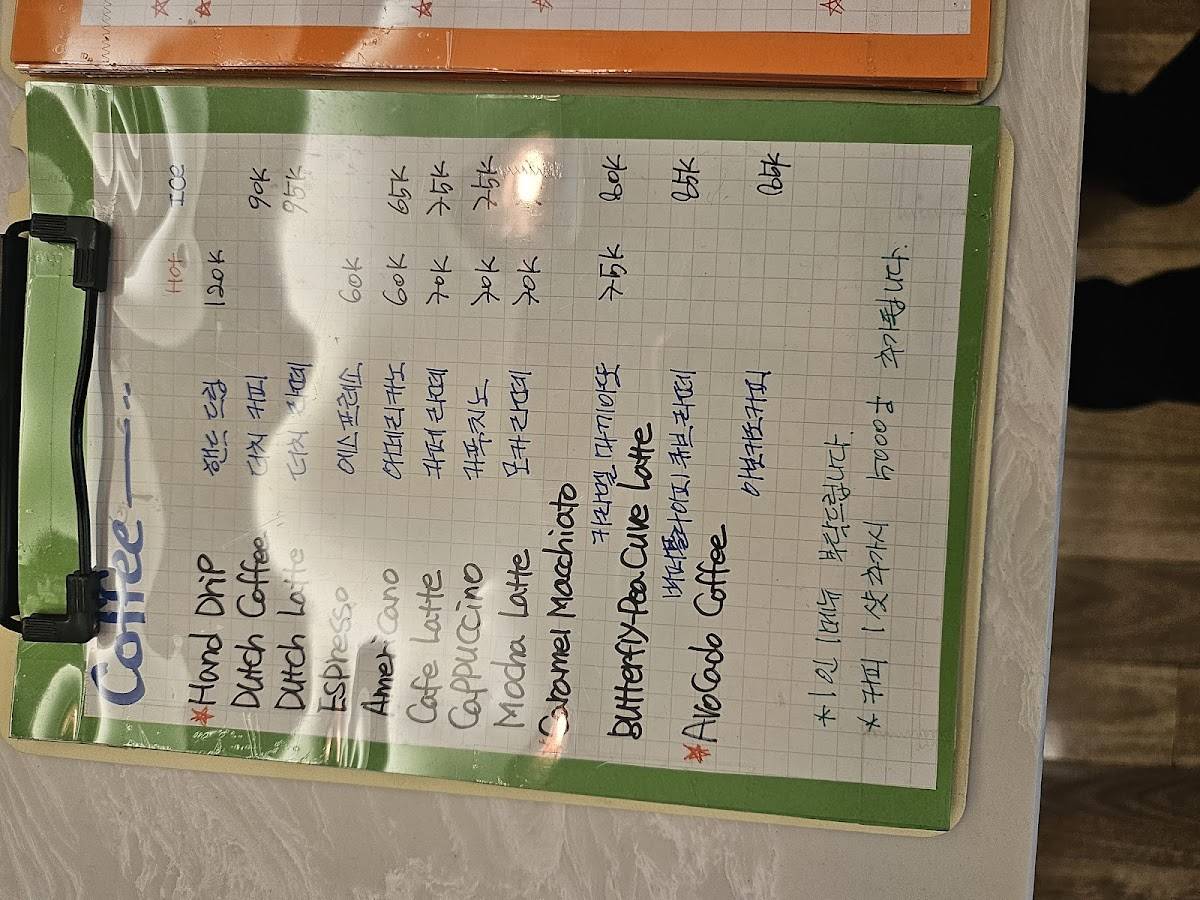 Coffee
HOT ICE
Hand Drip 핸드 드립 120K
Dutch Coffee 더치 커피 90K
Dutch Latte 더치 라떼 95K
Espresso 에스프레소 60K
Americano 아메리카노 60K 65K
Cafe Latte 카페 라떼 70K 75K
Cappuccino 카푸치노 70K 75K
Mocha Latte 모카 라떼 70K
Caramel Macchiato
카라멜 마끼아또 75K 80K
Butterfly-Pea.Cuve Latte
버터플라이피 큐브라떼 85K
Avocado Coffee
아보카도커피 85K
* 1인 1메뉴 부탁드립니다.
* 커피 1샷 추가시 5000동 추가됩니다.